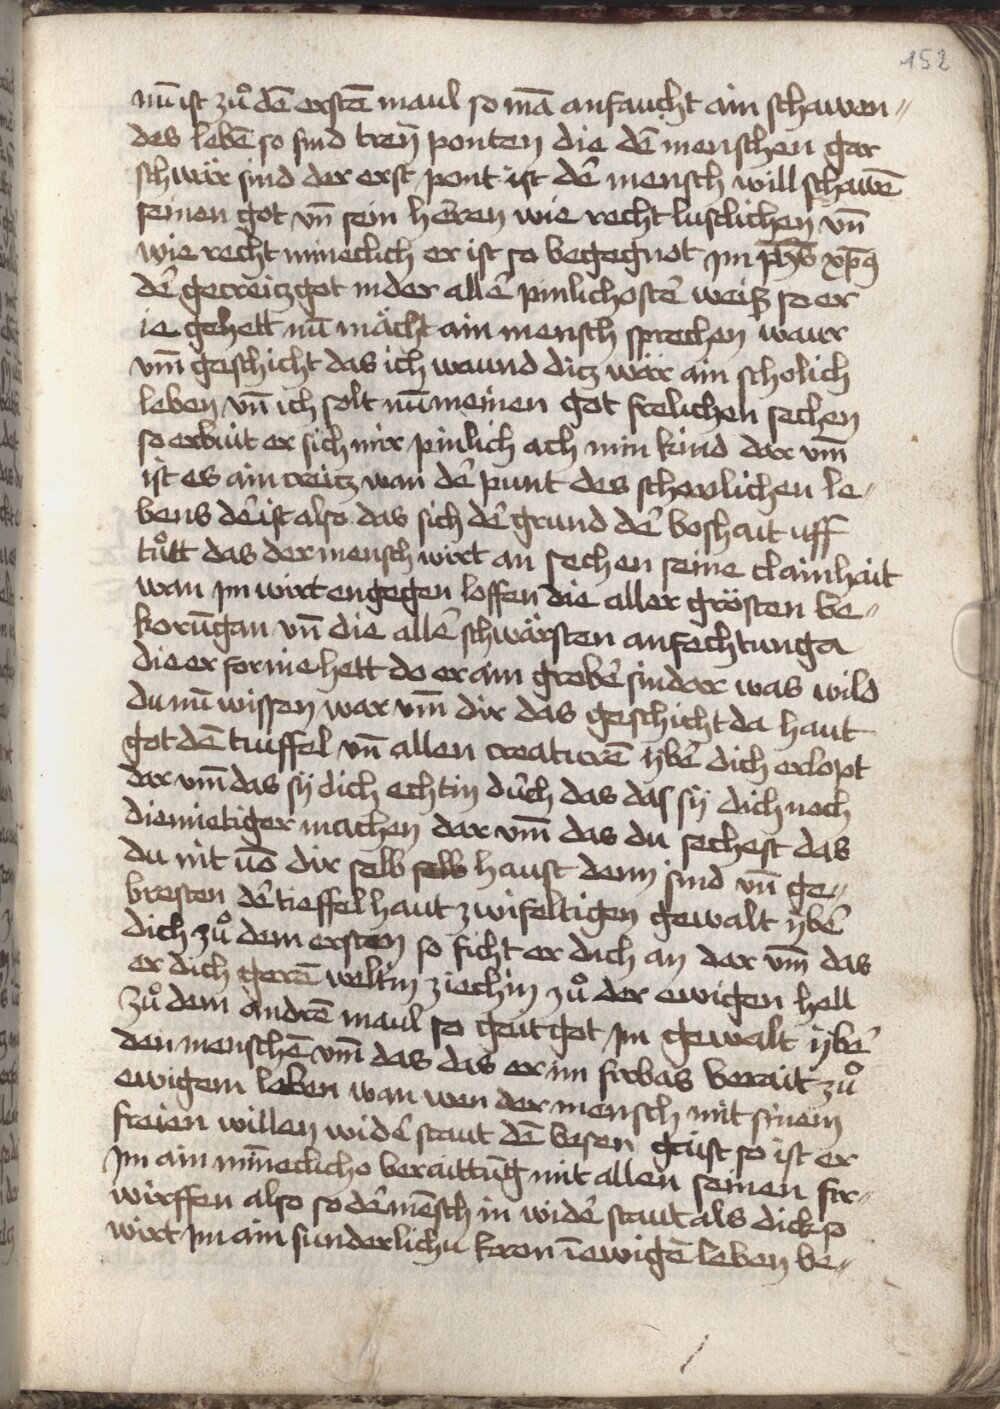 152
nū ist zů dē erstē maul so mā anfaucht ain schawen-
des lebē so sind treÿ ponten die dē menschen gar
schwär sind der erst pont ist dē mensch will schawē
seinen got vn̄ sein hēren wie recht lustlichen vn̄
wie recht mineclich er ist so begegnot im
dē gecreitzgot in der allē pinlichostē weisz so er
ie gehett nū mächt ain mensch sprechen waur
vm̄ geschicht das ich waund ditz wär ain scholich
leben vn̄ ich solt nū meinen got frelichen sechen
so erbuit er sich mir pinlich ach min kind dar vm̄
ist es ain creitz wan dē punt des schowlichen le-
bens dē ist also das sich dē grund dē boshait uff
tůtt das der mensch wirt an sechen seine clainhait
wan im wirt engegen loffen die aller grösten be-
korūgan vn̄ die allē schwärsten anfechtunga
die er for nie hett do er ain grobē sinder was wild
du nū wissen war vm̄ dir das geschicht da haut
got dē tuiffel vn̄ allen creaturē ÿbē dich erlopt
dar vm̄ das sÿ dich echtin dūch das das sÿ dich noch
diemietiger machen dar vm̄ das du sechest das
du nit uō dir selb selb haust denn sind vn̄ ge-
bresten dē tieffel haut zwifeltigen gewalt ÿbē
dich zů dem ersten so ficht er dich an dar vm̄ das
er dich gerē weltin ziechin zů der ewigen hell
zů dem andrē maul so geit got im gewalt ÿbē
den menschē vm̄ das das er im firbas berait zů
ewigem leben wan wen der mensch mit sinem
freien willen widē staut dē besen gaist so ist er
im ain mīneclicho beraittūg mit allen seinen fir-
wirffen also so dē mēsch in widē staut als dick so
wirt im ain sunderlichu kron ī ewigē leben be-